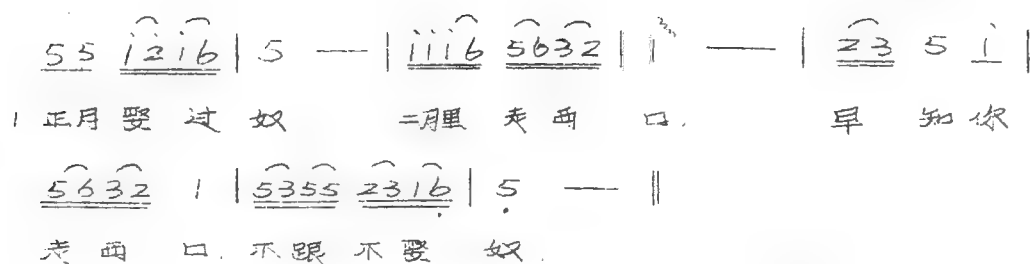 55 i2i6 | 5 — | iii6 5632 | i — | 23 5 i |
1 正月娶过奴 二月里走西口. 早知你
5632 1 | 5355 2316 | 5 — ‖
走西口. 不跟不娶奴.